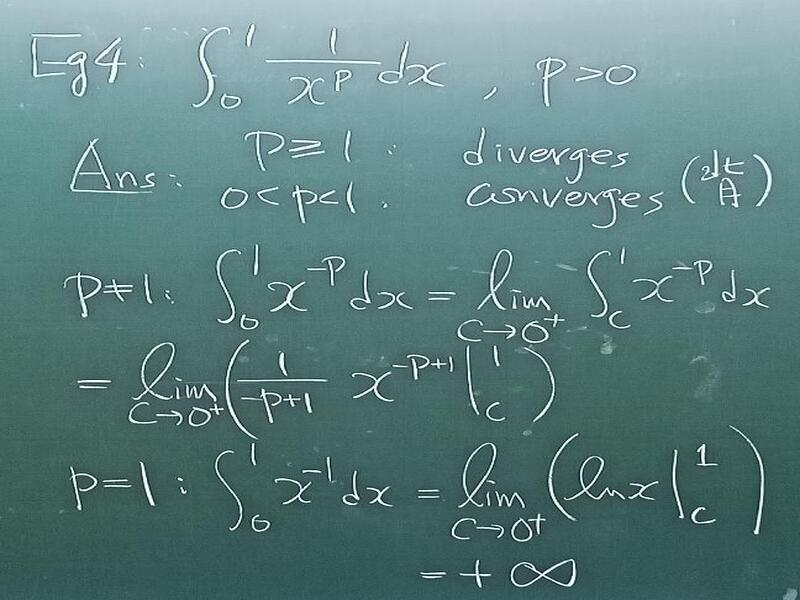 Eg4: ∫₀¹ 1/x^p dx , p>0
Ans: p≥1: diverges
0<p<1: converges
p≠1: ∫₀¹ x^{-p} dx = lim_{c→0⁺} ∫_c¹ x^{-p} dx
= lim_{c→0⁺} (1/(-p+1) x^{-p+1} |_c^1)
p=1: ∫₀¹ x^{-1} dx = lim_{c→0⁺} (ln x |_c^1)
= + ∞